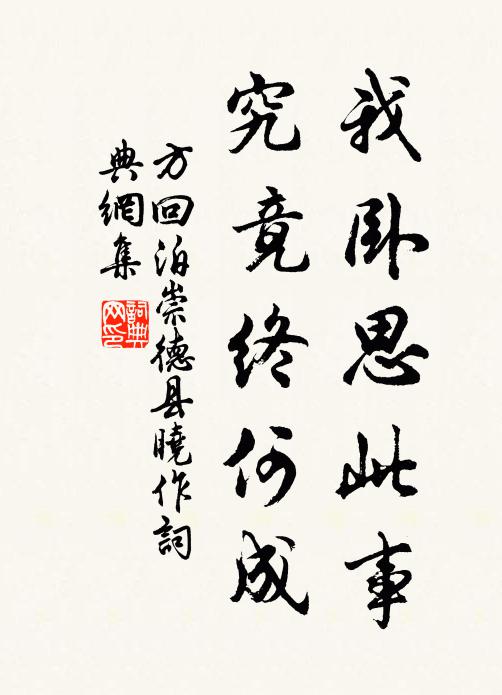 我卧思此事
究竟终何成
方回泊崇德县曉作詞
典網集
詞典
网印